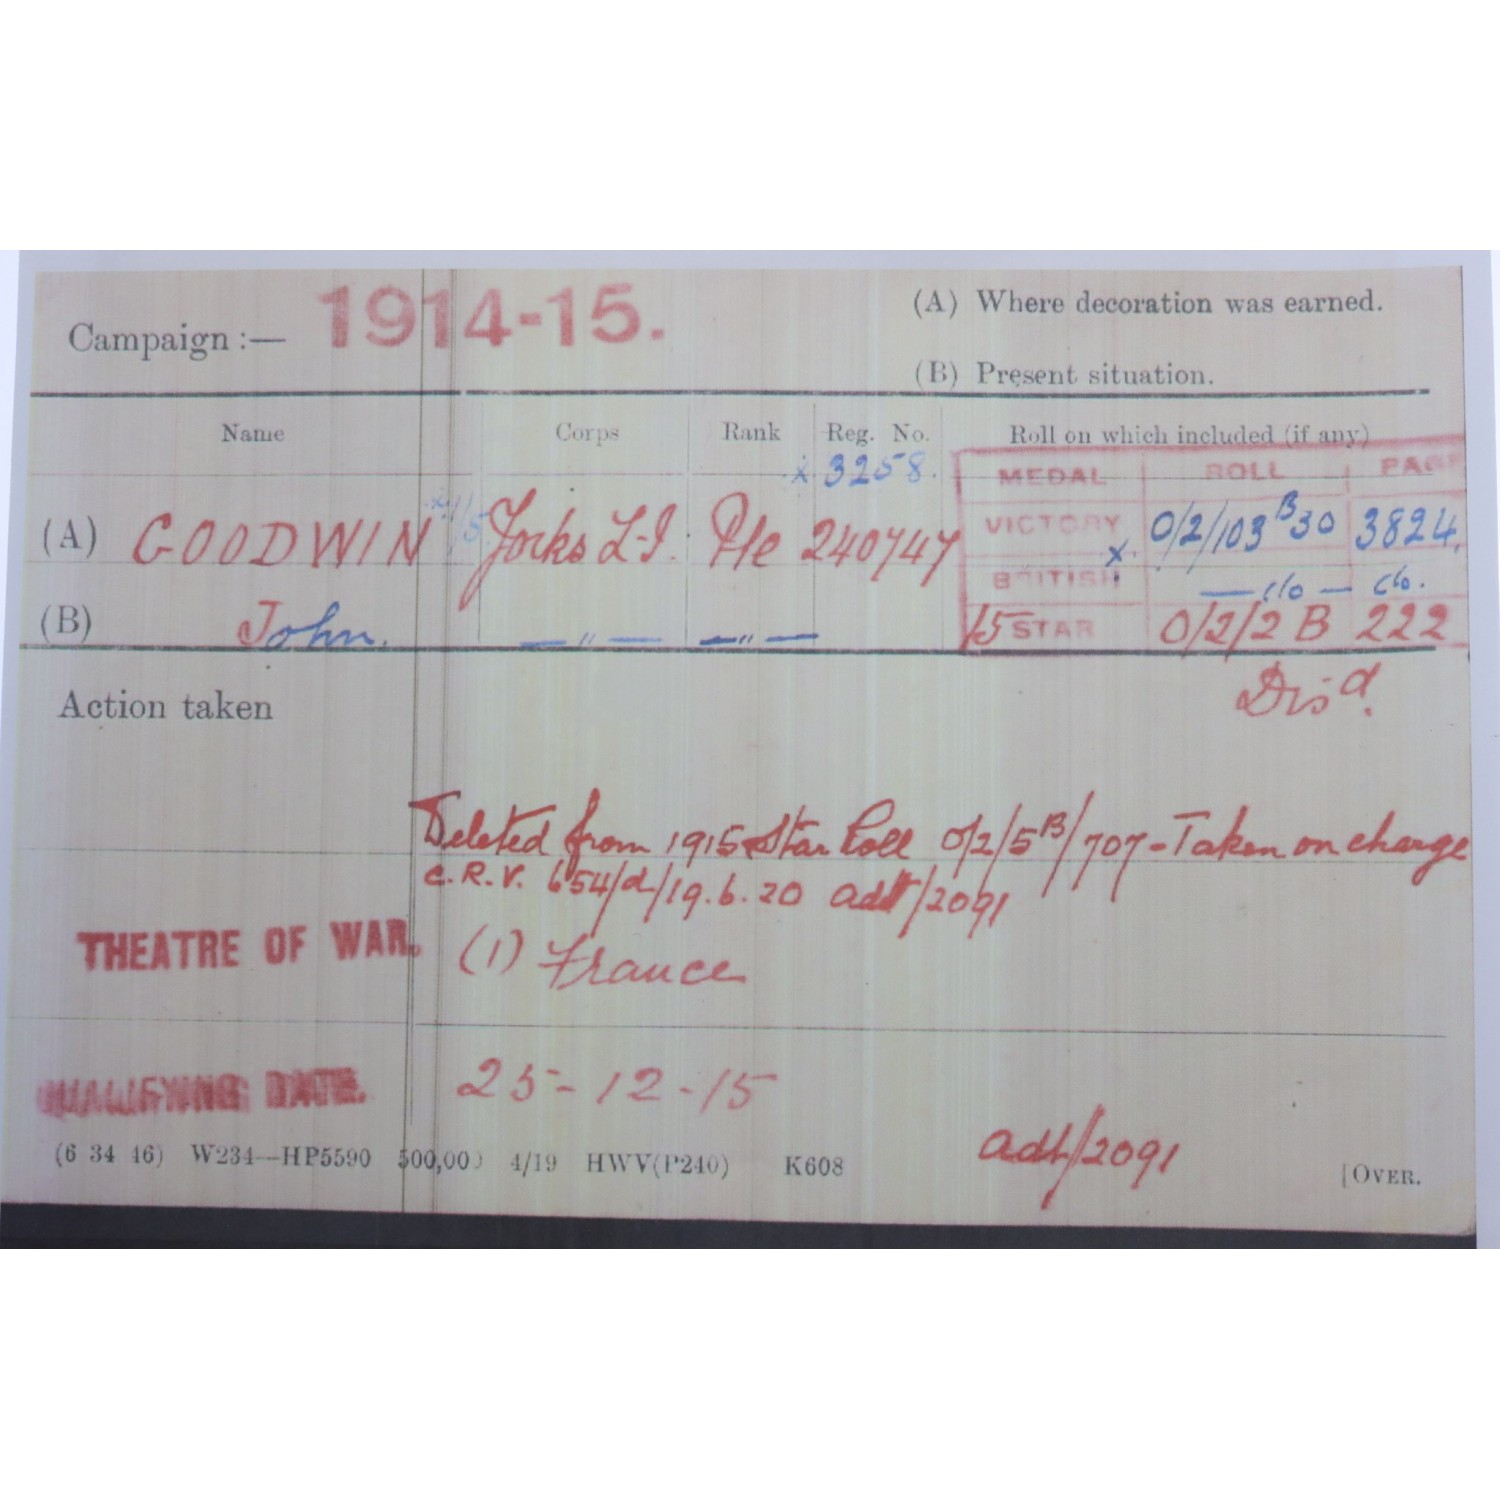 Campaign :— 1914-15.
(A) Where decoration was earned.
(B) Present situation.
Name Corps Rank Reg. No. Roll on which included (if any)
x 3258.
MEDAL ROLL PAGE
(A) GOODWIN Yorks L.I. Pte 240747
VICTORY x 0/2/103 B 30 3824.
BRITISH — do — do.
(B) John. — " — — " —
15 STAR 0/2/2 B 222
Action taken
Dis d.
Deleted from 1915 Star Roll 0/2/5 B/707 - Taken on charge
C.R.V. 654/d/19.6.20 adt/2091
THEATRE OF WAR. (1) France
QUALIFYING DATE. 25-12-15
adt/2091
(6 34 46) W234—HP5590 500,000 4/19 HWV(P240) K608 [OVER.